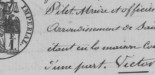 IMPÉRIAL
Pilot Maire et officier
Arrondissement de San
étant en la maison com
d'une part. Victor